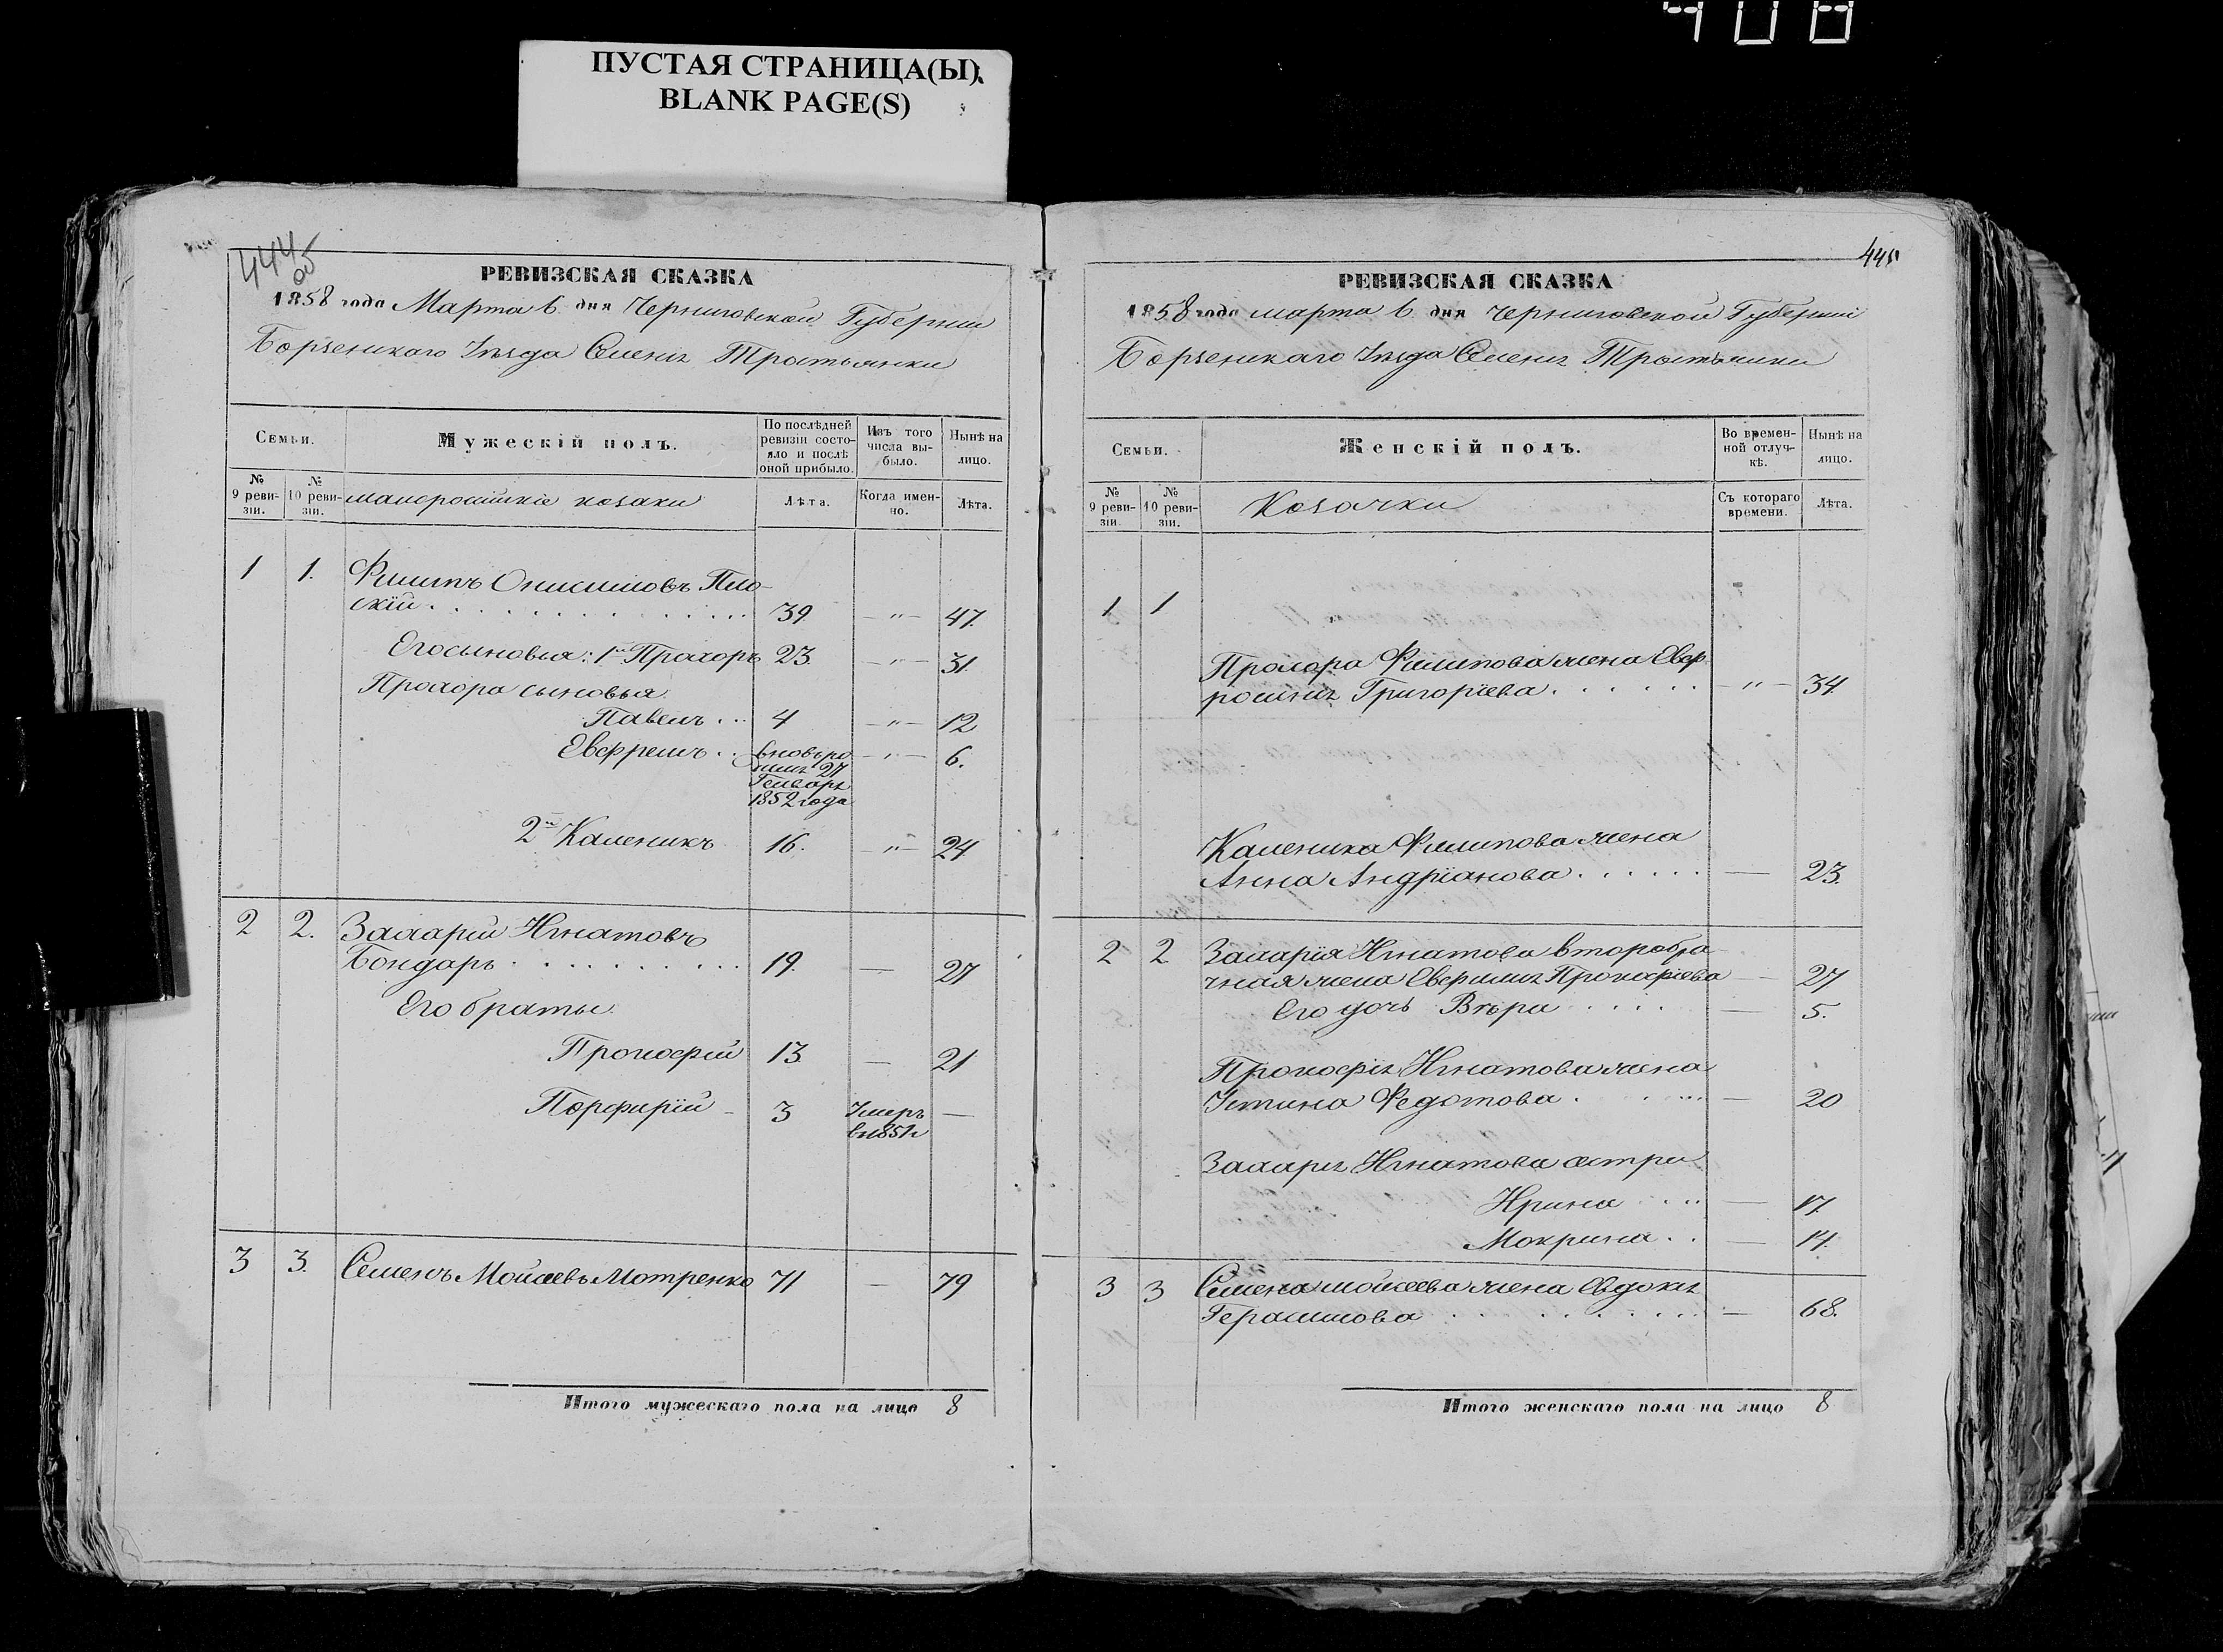 408
ПУСТАЯ СТРАНИЦА(Ы)
BLANK PAGE(S)
444
об
РЕВИЗСКАЯ СКАЗКА
1858 года Марта 6 дня Черниговской Губернии
Борзенскаго Уѣзда Селенія Тростянки
Семьи.
Мужескій полъ.
По послѣдней ревизіи состояло и послѣ оной прибыло.
Изъ того числа выбыло.
Нынѣ на лицо.
№ 9 ревизіи.
№ 10 ревизіи.
малоросійскіе козаки
Лѣта.
Когда именно.
Лѣта.
1 1. Филипъ Онисимовъ Пло-
скій . . . 39 — " — 47
Его сыновья: 1й Прохоръ 23. — " — 31
Прохора сыновья
Павелъ . . 4 — " — 12
Евфремъ . . вновь ро — " — 6.
жденъ 27
Генваря
1852 года
2й Каленикъ 16. — " — 24
2 2. Захарій Игнатовъ
Бондарь . . . 19. — 27
Его браты
Прокофій 13 — 21
Порфирій 3 Умеръ —
в 1851г
3 3. Семенъ Мойсеевъ Мотренко 71 — 79
Итого мужескаго пола на лицо 8
445
РЕВИЗСКАЯ СКАЗКА
1858 года марта 6 дня Черниговской Губерніи
Борзенскаго Уѣзда Селенія Тростянки
Семьи.
Женскій полъ.
Во временной отлучкѣ.
Нынѣ на лицо.
№ 9 ревизіи.
№ 10 ревизіи.
Козачки
Съ котораго времени.
Лѣта.
1 1
Прохора Филипова жена Евф
росинія Григоріева . . . " — 34
Каленика Филипова жена
Анна Андріанова . . . — 23.
2 2 Захарія Игнатова второбра-
чная жена Евфимія Прокофіева — 27
Его дочь Вѣра . . . — 5.
Прокофія Игнатова жена
Устина Федотова . . . — 20
Захарія Игнатова сестры
Ирина . . — 17.
Мокрина . . — 14.
3 3 Семена Мойсеева жена Евдокія
Герасимова . . . — 68.
Итого женскаго пола на лицо 8